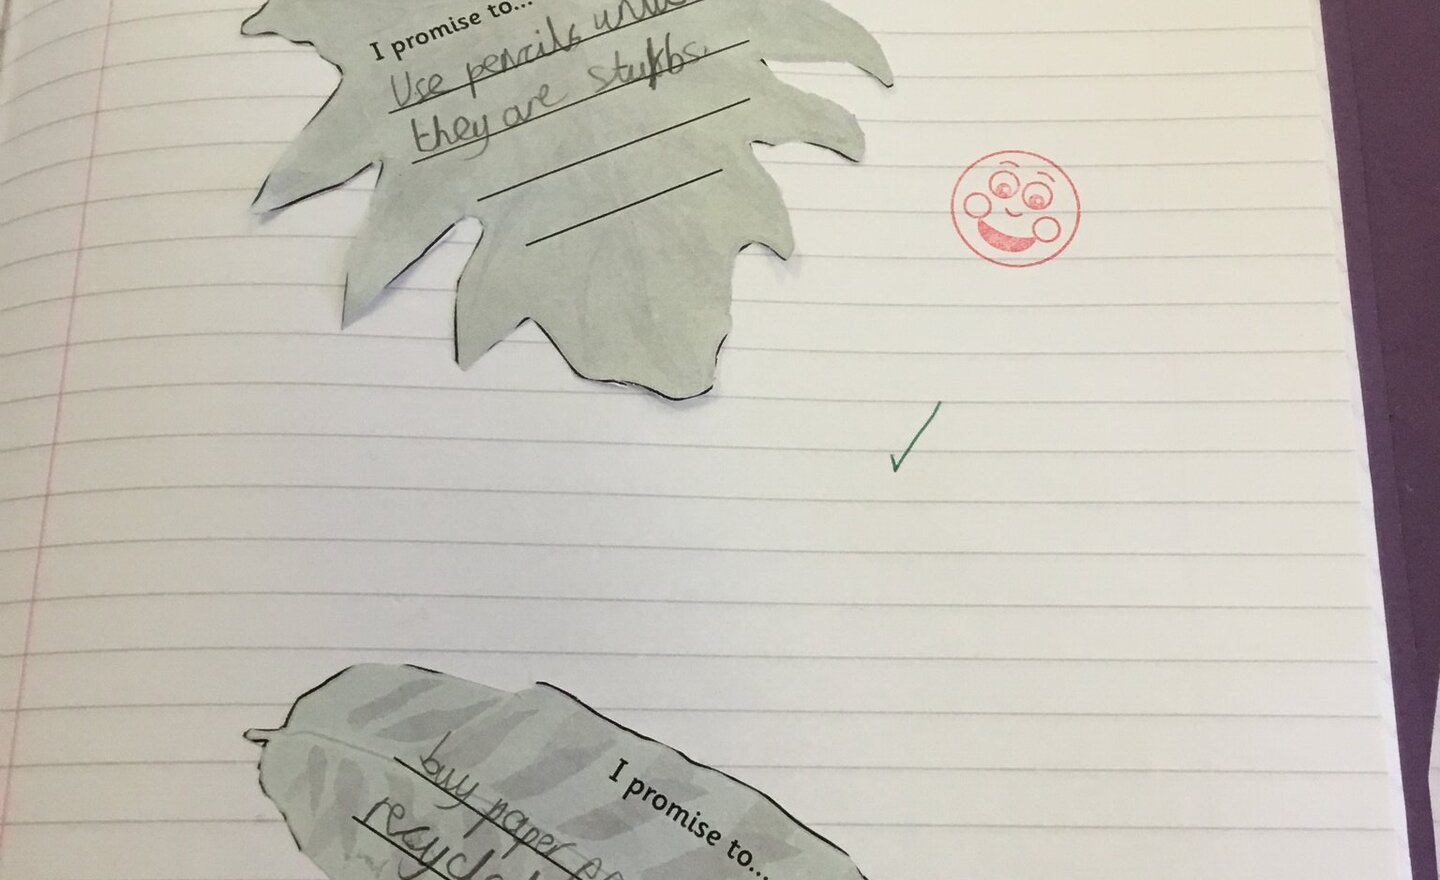 I promise to...
Use pencils until
they are stubbs.
I promise to...
buy paper